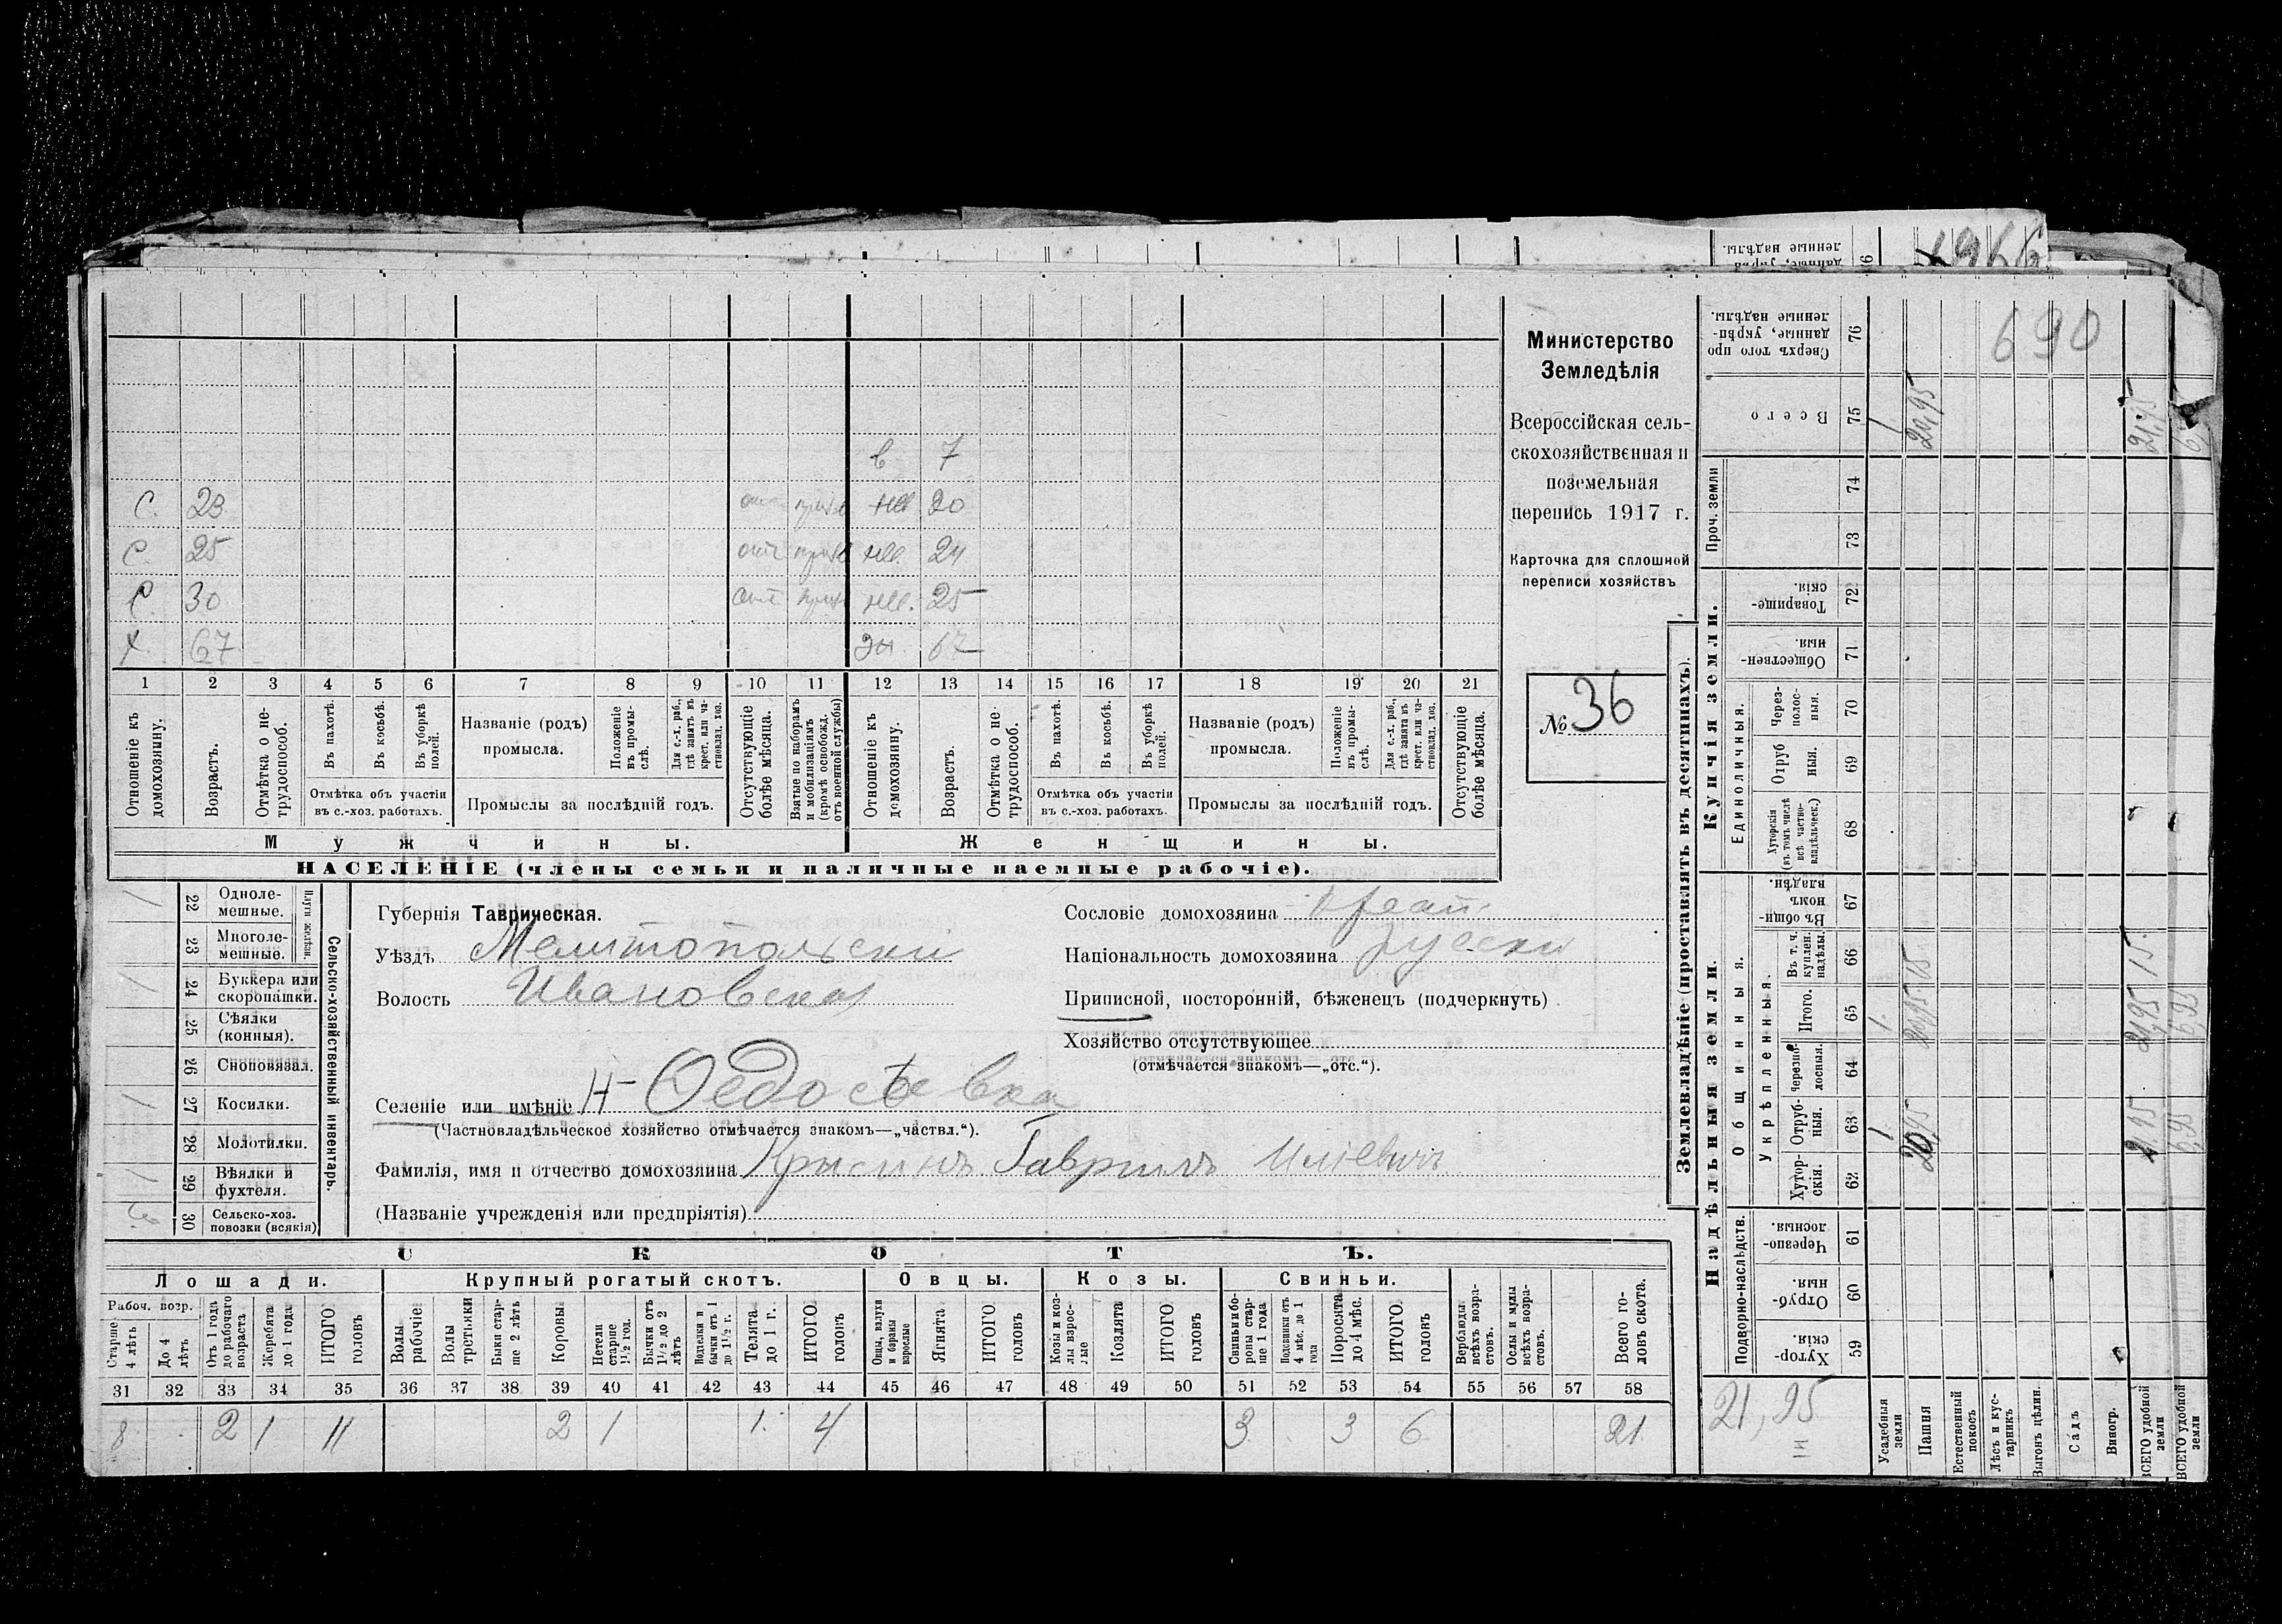 Министерство
Земледѣлія
Всероссійская сель-
скохозяйственная и
поземельная
перепись 1917 г.
Карточка для сплошной
переписи хозяйствъ
№ 36
в 7
С. 23 нев 20
С. 25 нев. 24
С. 30 нев. 25
Х. 67 жен 67
1 2 3 4 5 6 7 8 9 10 11 12 13 14 15 16 17 18 19 20 21
Отношеніе къ домохозяину.
Возрастъ.
Отмѣтка о не-трудоспособ.
Въ пахотѣ.
Въ косьбѣ.
Въ уборкѣ полей.
Отмѣтка объ участіи въ с.-хоз. работахъ.
Названіе (родъ) промысла.
Положеніе въ промы-слѣ.
Для с.-х. раб., гдѣ занятъ въ крест. или ча-стновлад. хоз.
Промыслы за послѣдній годъ.
Отсутствующіе болѣе мѣсяца.
Взятые по наборамъ и мобилизаціямъ (кромѣ освобожд. отъ военной службы)
Отношеніе къ домохозяину.
Возрастъ.
Отмѣтка о не-трудоспособ.
Въ пахотѣ.
Въ косьбѣ.
Въ уборкѣ полей.
Отмѣтка объ участіи въ с.-хоз. работахъ.
Названіе (родъ) промысла.
Положеніе въ промы-слѣ.
Для с.-х. раб., гдѣ занята въ крест. или ча-стновлад. хоз.
Промыслы за послѣдній годъ.
Отсутствующіе болѣе мѣсяца.
Мужчины. Женщины.
НАСЕЛЕНІЕ (члены семьи и наличные наемные рабочіе).
22 Одноле-мешные.
23 Многоле-мешные.
Плуги желѣзн.
24 Буккера или скоропашки.
25 Сѣялки (конныя).
26 Сноповязал.
27 Косилки.
28 Молотилки.
29 Вѣялки и фухтеля.
30 Сельско-хоз. повозки (всякія)
Сельско-хозяйственный инвентарь.
Губернія Таврическая.
Уѣздъ Мелитопольскій
Волость Ивановская
Сословіе домохозяина крест.
Національность домохозяина русскій
Приписной, посторонній, бѣженецъ (подчеркнуть)
Хозяйство отсутствующее
(отмѣчается знакомъ—„отс.“).
Селеніе или имѣніе Н-Ѳедосѣевка
(Частновладѣльческое хозяйство отмѣчается знакомъ—„частвл.“).
Фамилія, имя и отчество домохозяина Крысинъ Гаврилъ Иліевичъ
(Названіе учрежденія или предпріятія)
СКОТЪ.
Лошади. Крупный рогатый скотъ. Овцы. Козы. Свиньи.
Рабоч. возр.
Старше 4 лѣтъ
До 4 лѣтъ
Отъ 1 года до рабочаго возраста
Жеребята до 1 года
ИТОГО головъ
Волы рабочіе
Волы третьяки
Быки стар-ше 2 лѣтъ
Коровы
Нетели старше 1½ год.
Бычки отъ 1½ до 2 лѣтъ
Подтелки и бычки отъ 1 до 1½ г.
Телята до 1 г.
ИТОГО головъ
Овцы, валухи и бараны взрослые
Ягнята
ИТОГО головъ
Козы и коз-лы взрос-лые
Козлята
ИТОГО головъ
Свиньи и бо-ровы стар-ше 1 года
Подсвинки отъ 4 мѣс. до 1 года
Поросята до 4 мѣс.
ИТОГО головъ
Верблюды всѣхъ возра-стовъ.
Ослы и мулы всѣхъ возра-стовъ.
Всего го-ловъ скота.
31 32 33 34 35 36 37 38 39 40 41 42 43 44 45 46 47 48 49 50 51 52 53 54 55 56 57 58
8 2 1 11 2 1 1 4 3 3 6 21
Землевладѣніе (проставлять въ десятинахъ).
Купчія земли.
Надѣльныя земли.
Сверхъ того про-данные, укрѣп-ленные надѣлы. 76
Всего 75
Проч. земли
74
73
Товарище-скія. 72
Обществен-ныя. 71
Единоличныя.
Через-полос-ныя. 70
Отруб-ныя. 69
Хуторскія (въ томъ числѣ всѣ частно-владѣльческ.) 68
Общинныя.
Въ общи-номъ владѣн. 67
Укрѣпленныя.
Въ т. ч. куплен. надѣлы. 66
Итого. 65
Черезпо-лосныя. 64
Отруб-ныя. 63
Хутор-скія. 62
Подворно-наслѣдств.
Черезпо-лосныя. 61
Отруб-ныя. 60
Хутор-скія. 59
690
21,95
Усадебныя земли
Пашня
Естественный покосъ
Лѣсъ и кус-тарникъ
Выгонъ цѣлин.
Садъ
Виногр.
ВСЕГО удобной земли
ВСЕГО удобной земли
1 20,95
21,95
6,95